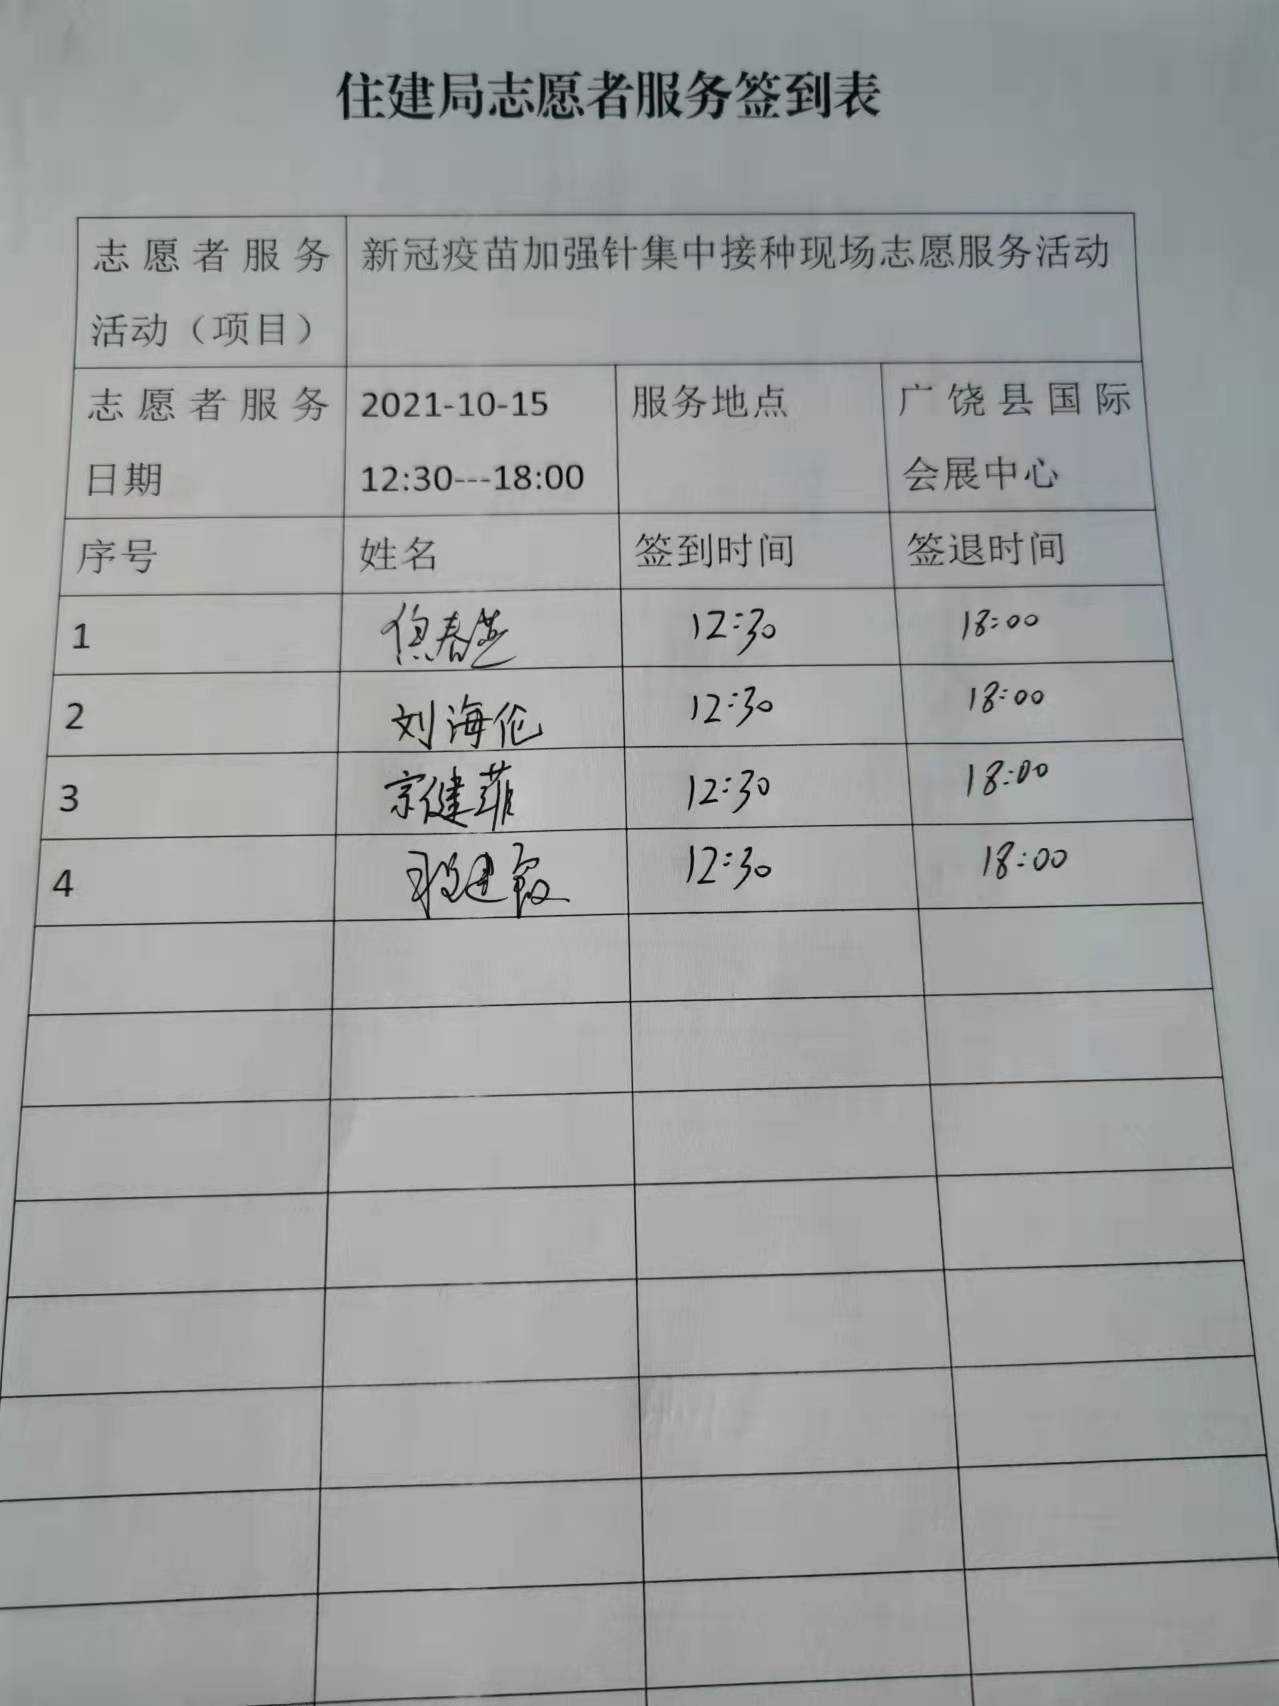 住建局志愿者服务签到表
志愿者服务 新冠疫苗加强针集中接种现场志愿服务活动
活动（项目）
志愿者服务 2021-10-15 服务地点 广饶县国际
日期 12:30---18:00 会展中心
序号 姓名 签到时间 签退时间
1 12:30 18:00
2 刘海伦 12:30 18:00
3 宗健菲 12:30 18:00
4 12:30 18:00